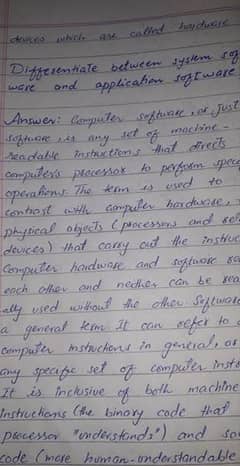 devices which are called hardware
Differentiate between system sof
ware and application software
Answer: Computer software, or just
software, is any set of machine-
readable instructions that directs
computer's processor to perform spec
operations. The term is used to
contrast with computer hardware,
physical objects (processors and rel
devices) that carry out the instruc
Computer hardware and software
each other and neither can be rea
ally used without the other. Software
a general term It can refer to
computer instructions in general, or
any specific set of computer inst
It is inclusive of both machine
instructions (the binary code that
processor "understands") and so
code (more human-understandable